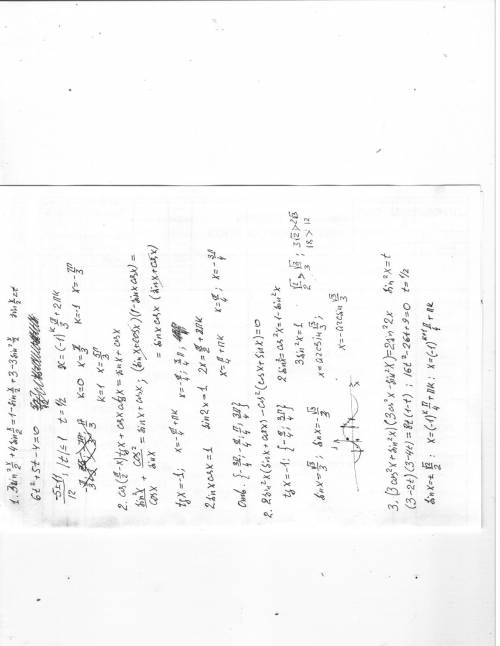 1. 3sin² x/2 + 4sin x/2 = 1 - sin x/2 + 3 - 3sin² x/2   sin x/2 = t
6t² + 5t - 4 = 0
-5±11 / 12   |t| ≤ 1   t = 1/2   x = (-1)^k π/3 + 2πk
k=0   x = π/3
k=1   x = 5π/3   k=-1   x = -7π/3
2. cos(π/2 - x) tgx + cosx ctgx = sinx + cosx
sin²x/cosx + cos²x/sinx = sinx + cosx ; (sinx + cosx)(1 - sinx cosx) =
= sinx cosx (sinx + cosx)
tgx = -1; x = -π/4 + πk   x = -π/4; 3π/4;
2sinx cosx = 1   sin2x = 1, 2x = π/2 + 2πk
x = π/4 + πk   x = π/4; x = -3π/4
Отв. {-3π/4; -π/4; π/4; 3π/4}
2. 2sin²x (sinx + cosx) - cos²(cosx + sinx) = 0
tgx = -1: {-π/4; 3π/4}   2sin²x = cos²x = 1 - sin²x
3sin²x = 1
sinx = √3/3; sinx = -√3/3   1/√2 > √3/3; 3√2 > 2√3
x = arcsin √3/3;   18 > 12
x = -arcsin √3/3
3. (3cos²x + sin²x)(3cos²x - sin²x) = 2sin²2x   sin²x = t
(3-2t)(3-4t) = 8t(1-t) ; 16t² - 26t + 9 = 0   t = 1/2
sinx = ± √2/2 : x = (-1)^k π/4 + πk : x = (-1)^k+1 π/4 + πk